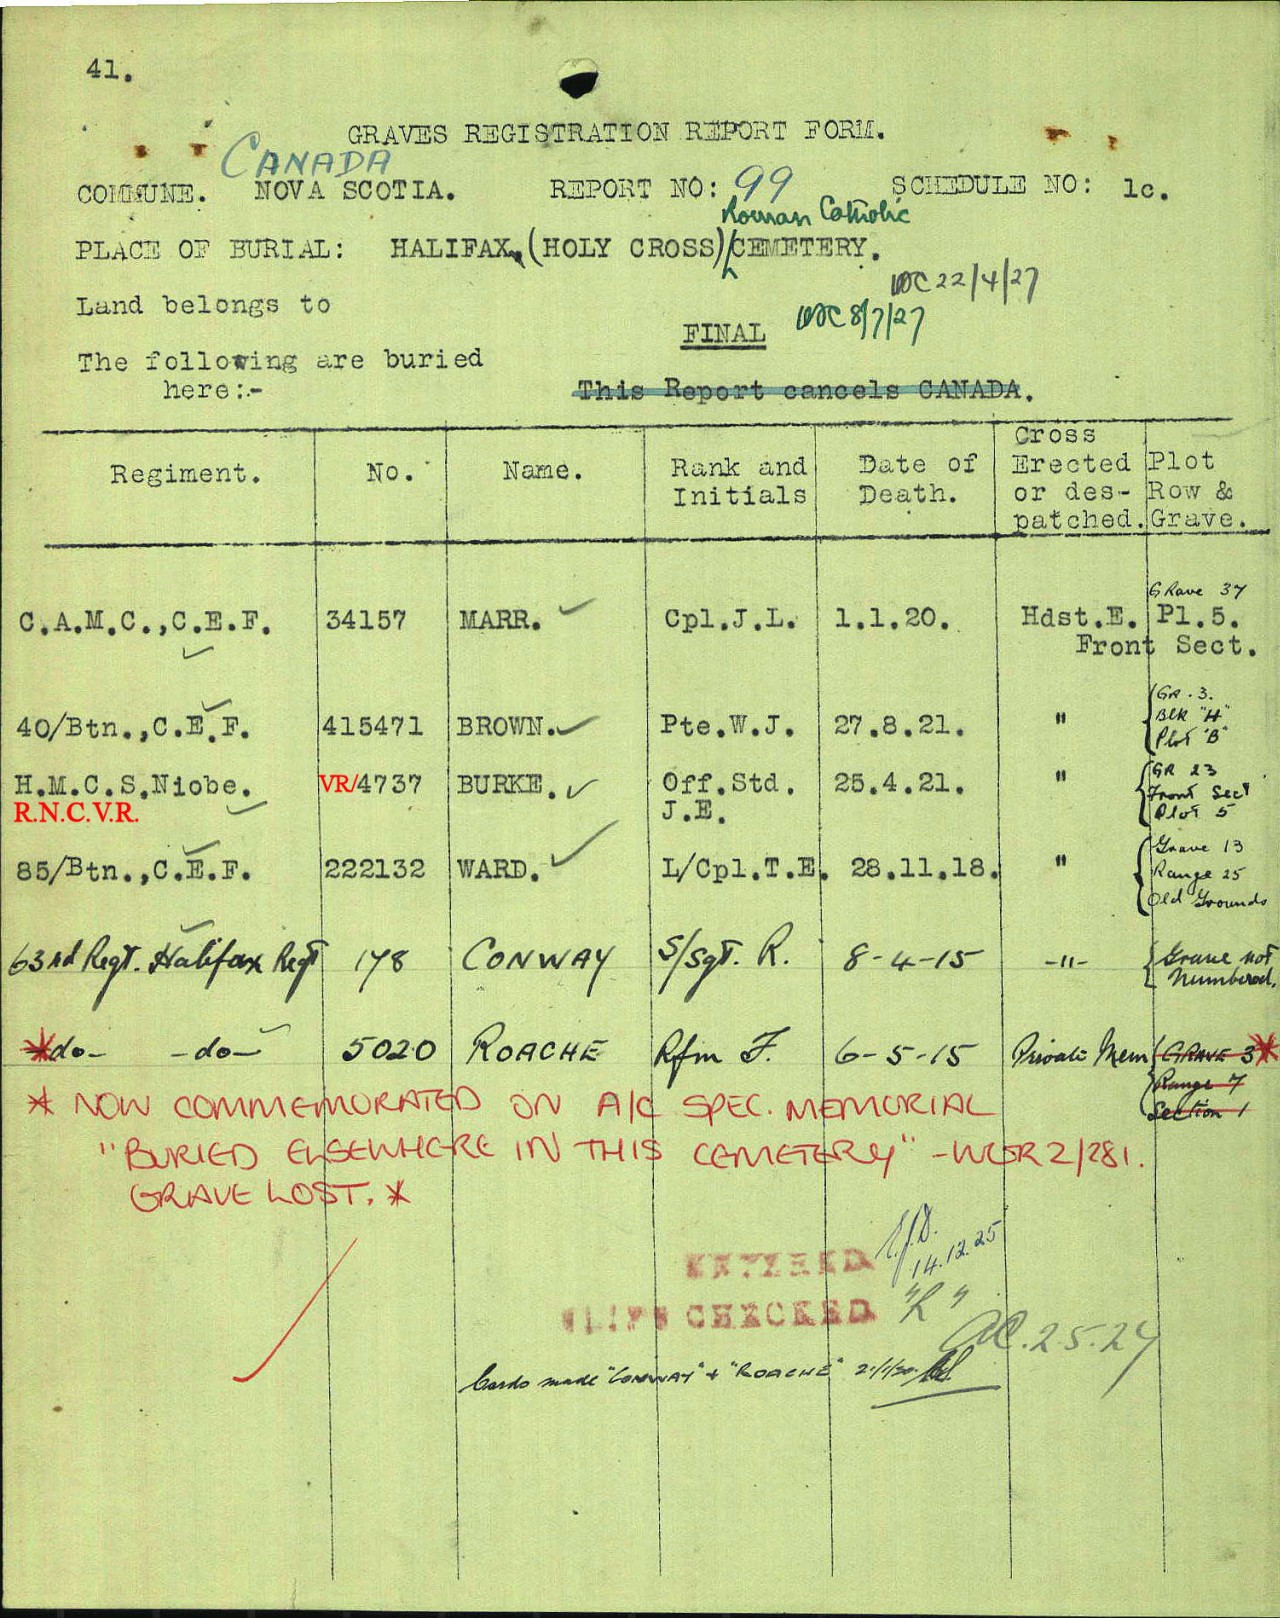 41.
GRAVES REGISTRATION REPORT FORM.
CANADA
COMMUNE. NOVA SCOTIA. REPORT NO: 99 SCHEDULE NO: 1c.
Roman Catholic
PLACE OF BURIAL: HALIFAX, (HOLY CROSS) CEMETERY.
22/4/27
Land belongs to
FINAL 8/7/27
The following are buried
here:-
This Report cancels CANADA.
Regiment. No. Name. Rank and Initials Date of Death. Cross Erected or des-patched. Plot Row & Grave.
Grave 37
C.A.M.C.,C.E.F. 34157 MARR. Cpl.J.L. 1.1.20. Hdst.E. Pl.5.
Front Sect.
GR. 3.
40/Btn.,C.E.F. 415471 BROWN. Pte.W.J. 27.8.21. " Blk "H"
Plot "B"
GR 23
H.M.C.S.Niobe. VR/4737 BURKE. Off.Std. 25.4.21. " Front Sect
R.N.C.V.R. J.E. Plot 5
Grave 13
85/Btn.,C.E.F. 222132 WARD. L/Cpl.T.E. 28.11.18. " Range 25
Old Grounds
63rd Regt. Halifax Regt 178 CONWAY S/Sgt. R. 8-4-15 -"- Grave not
Numbered.
*do- -do- 5020 ROACHE Rfm F. 6-5-15 Private Mem GRAVE 3*
Range 7
Section 1
* NOW COMMEMORATED ON A/C SPEC. MEMORIAL
"BURIED ELSEWHERE IN THIS CEMETERY" - WGR2/281.
GRAVE LOST. *
ENTERED 14.12.25
SLIPS CHECKED
25.27
Cards made "CONWAY" + "ROACHE"